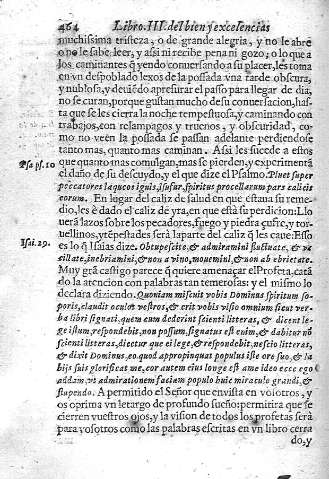 464 Libro. III. del bien y excelencias
muchissima tristeza, o de grande alegria, y no le abre
o no le sabe leer, y assi ni recibe pena ni gozo; o lo que a
los caminantes q̃ yendo conuersando a su plazer, les toma
en vn despoblado lexos de la possada vna tarde obscura,
y nublosa, y deuiẽdo apresurar el passo para llegar de dia,
no se curan, porque gustan mucho de su conuersacion, has-
ta que se les cierra la noche tempestuosa, y caminando con
trabajos, con relampagos y truenos, y obscuridad, co-
mo no veen la possada se passan adelante perdiendose
tanto mas, quanto mas caminan. Assi les sucede a estos
Psa pſ. 10 que quanto mas comulgan, mas se pierden, y experimentã
el daño de su descuydo, y el que dize el Psalmo. Pluet super
peccatores laqueos ignis, sulfur, spiritus procellarum pars calicis
eorum. En lugar del caliz de salud en que estaua su reme-
dio, les es dado el caliz de yra, en que està su perdicion: Llo
uerà lazos sobre los pecadores, fuego y piedra çufre, y tor-
uellinos, y tẽpestades serà la parte del caliz q̃ les cabe. Esso
Isai. 29. es lo q̃ Isaias dize. Obtupescite, & admiramini fluctuate, & va
cillate, inebriamini, & non a vino, mouemini, & non ab ebrietate.
Muy grã castigo parece q̃ quiere amenaçar el Profeta, catã
do la atencion con palabras tan temerosas; y el mismo lo
declara diziendo. Quoniam miscuit vobis Dominus spiritum so-
poris, claudit oculos vestros, & erit vobis visio omnium sicut ver-
ba libri signati. quem cum dederint scienti litteras, & dicent le-
ge istum, respondebit, non possum, signatus est enim, & dabitur nõ
scienti litteras, dicetur que ei lege, & respondebit, nescio litteras,
& dixit Dominus, eo quod appropinquat populus iste ore suo, & la-
bijs suis glorificat me, cor autem eius longe est a me ideo ecce ego
addam, vt admirationem faciam populo huic miraculo grandi, &
stupendo. A permitido el Señor que enuista en vosotros, y
os oprima vn letargo de profundo sueño: permitira que se
cierren vuestros ojos, y la vision de todos los profetas serà
para vosotros como las palabras escritas en vn libro cerra
do, y